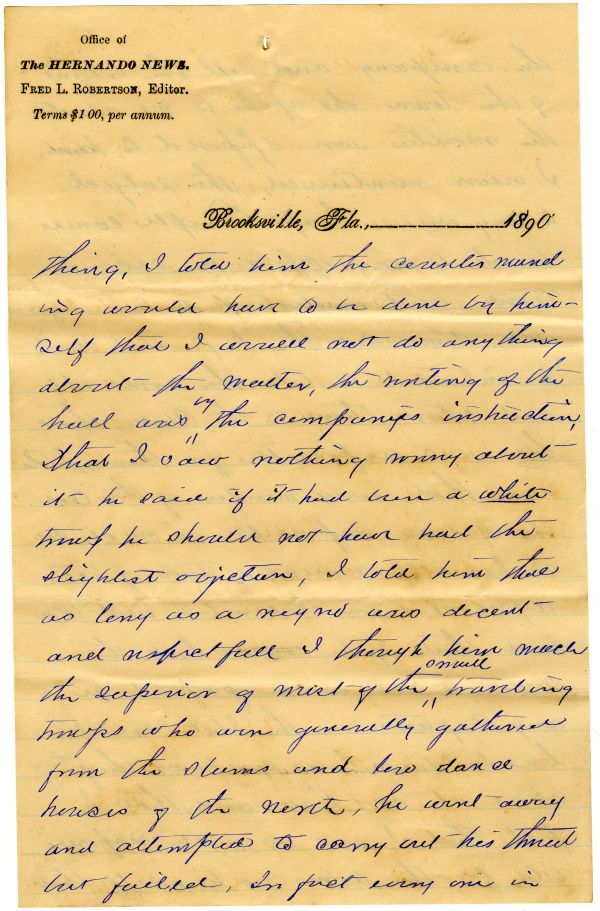 Office of
The HERNANDO NEWS.
FRED L. ROBERTSON, Editor.
Terms $1 00, per annum.
Brooksville, Fla., 1890
thing, I told him the counter mand
ing would have to be done by him-
self that I would not do anything
about the matter, the renting of the
hall was by the companies instruction,
& that I saw nothing wrong about
it he said if it had been a white
troup he should not have had the
slightest objection, I told him that
as long as a negro was decent
and respectfull I though him much
the superior of most of the small traveling
troups who were generally gathered
from the slums and low dance
houses of the north, he went away
and attempted to carry out his threat
but failed, In fact every one in